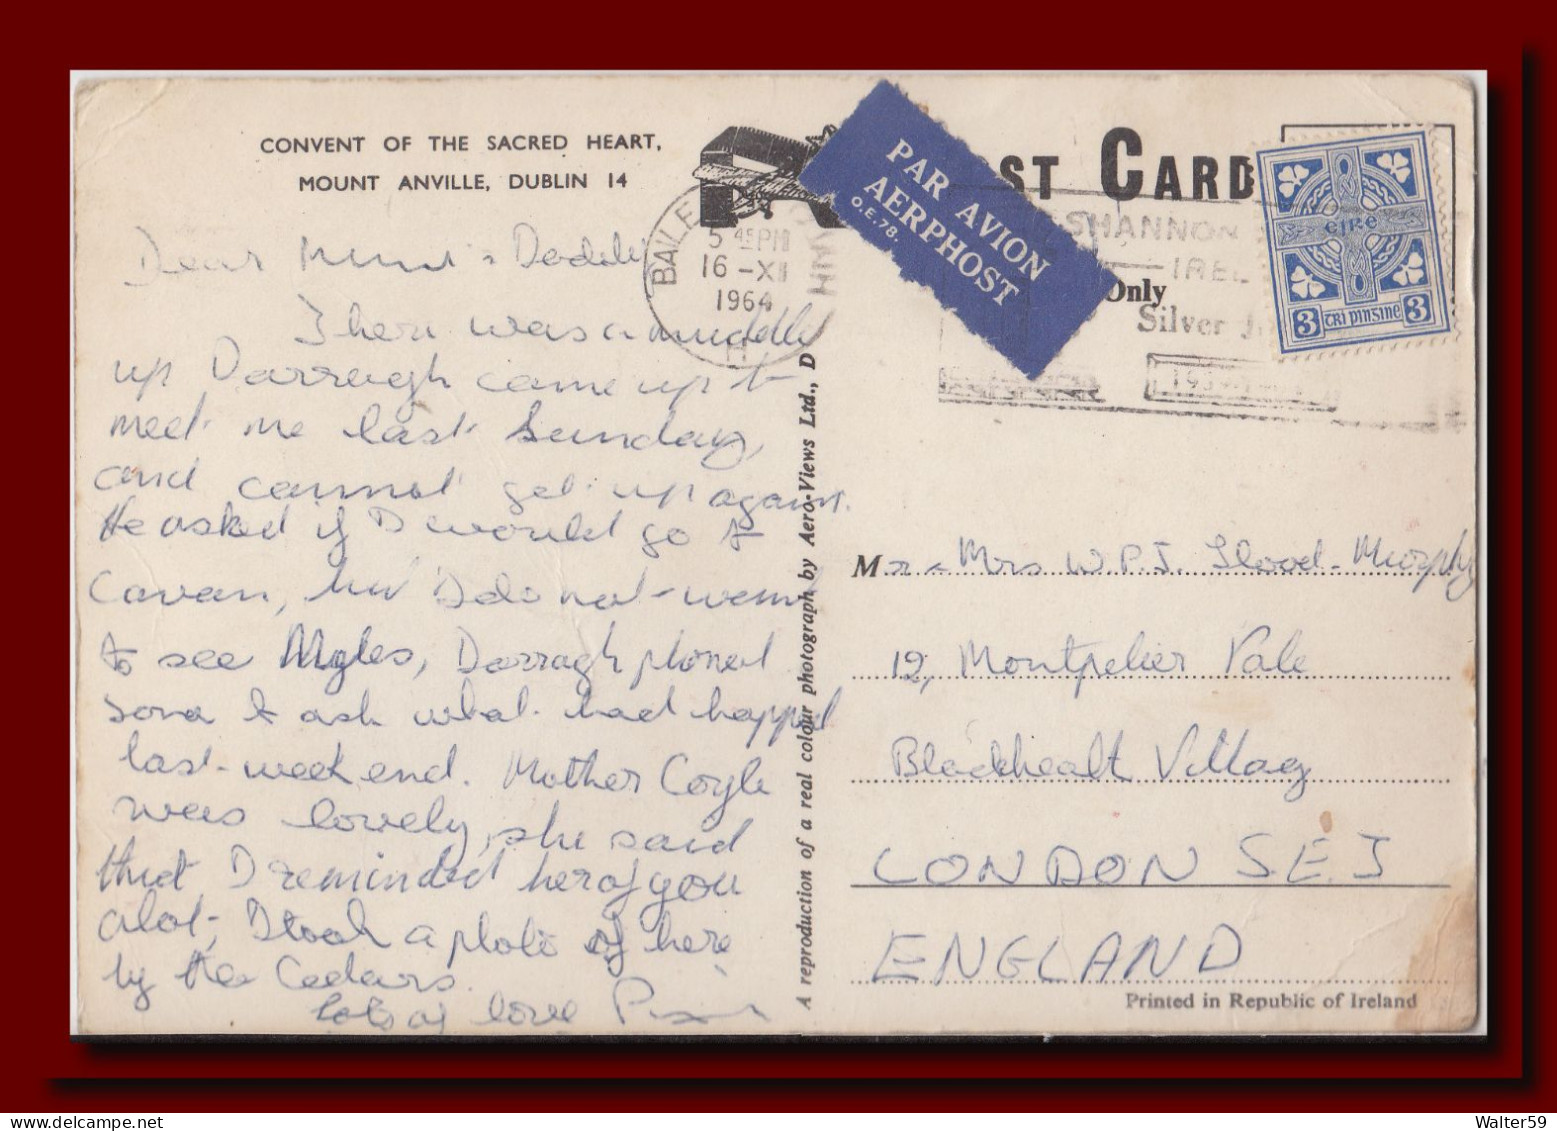 CONVENT OF THE SACRED HEART,
MOUNT ANVILLE, DUBLIN 14
ST CARD
PAR AVION
AERPHOST
O.E.78.
BAILE
5 45 PM
16 - XII
1964
SHANNON
IREL
Only
Silver
éire
3 TRI PINSINE 3
Dear Mum & Daddy
There was a muddle
up Darragh came up to
meet me last Sunday,
and cannot get up again.
He asked if I would go to
Cavan, but I do not want
to see Myles, Darragh phoned
to ask what had happed
last week end. Mother Coyle
was lovely, she said
that I reminded her of you
alot, I took a photo of here
by the Cedars.
lots of love
A reproduction of a real colour photograph by Aero-Views Ltd., D
Mr & Mrs W.P.J. Flood-Murphy
12, Montpelier Vale
Blackhealt Village
LONDON S.E.3
ENGLAND
Printed in Republic of Ireland
Walter59